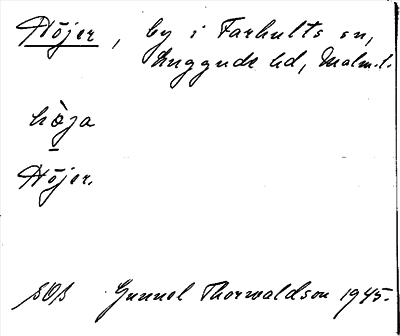 Höjer, by i Farhults sn,
Luggude hd, Malm.l.
hö̀ja
Höjer.
SOS Gunnel Thorwaldson 1945.